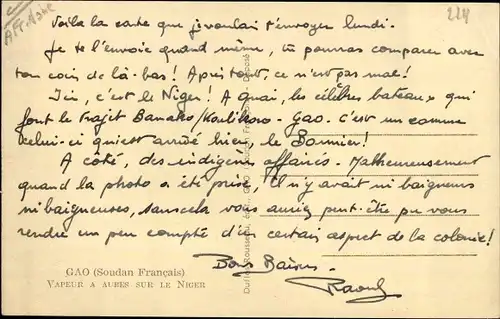 Afrique
224
Voilà la carte que je voulais t'envoyer lundi.
Je te l'envoie quand même, tu pourras comparer avec
ton coin de là-bas! Après tout, ce n'est pas mal!
Ici, c'est le Niger! A quai, les célèbres bateaux qui
font le trajet Bamako/Koulikoro - Gao. C'est un comme
celui-ci qui est arrivé hier, le Bonnier!
A côté, des indigènes affairés. Malheureusement
quand la photo a été prise, il n'y avait ni baigneurs
ni baigneuses, sans cela vous auriez peut-être pu vous
rendre un peu compte d'un certain aspect de la colonie!
Bons Baisers
Raoul
GAO (Soudan Français)
VAPEUR A AUBES SUR LE NIGER